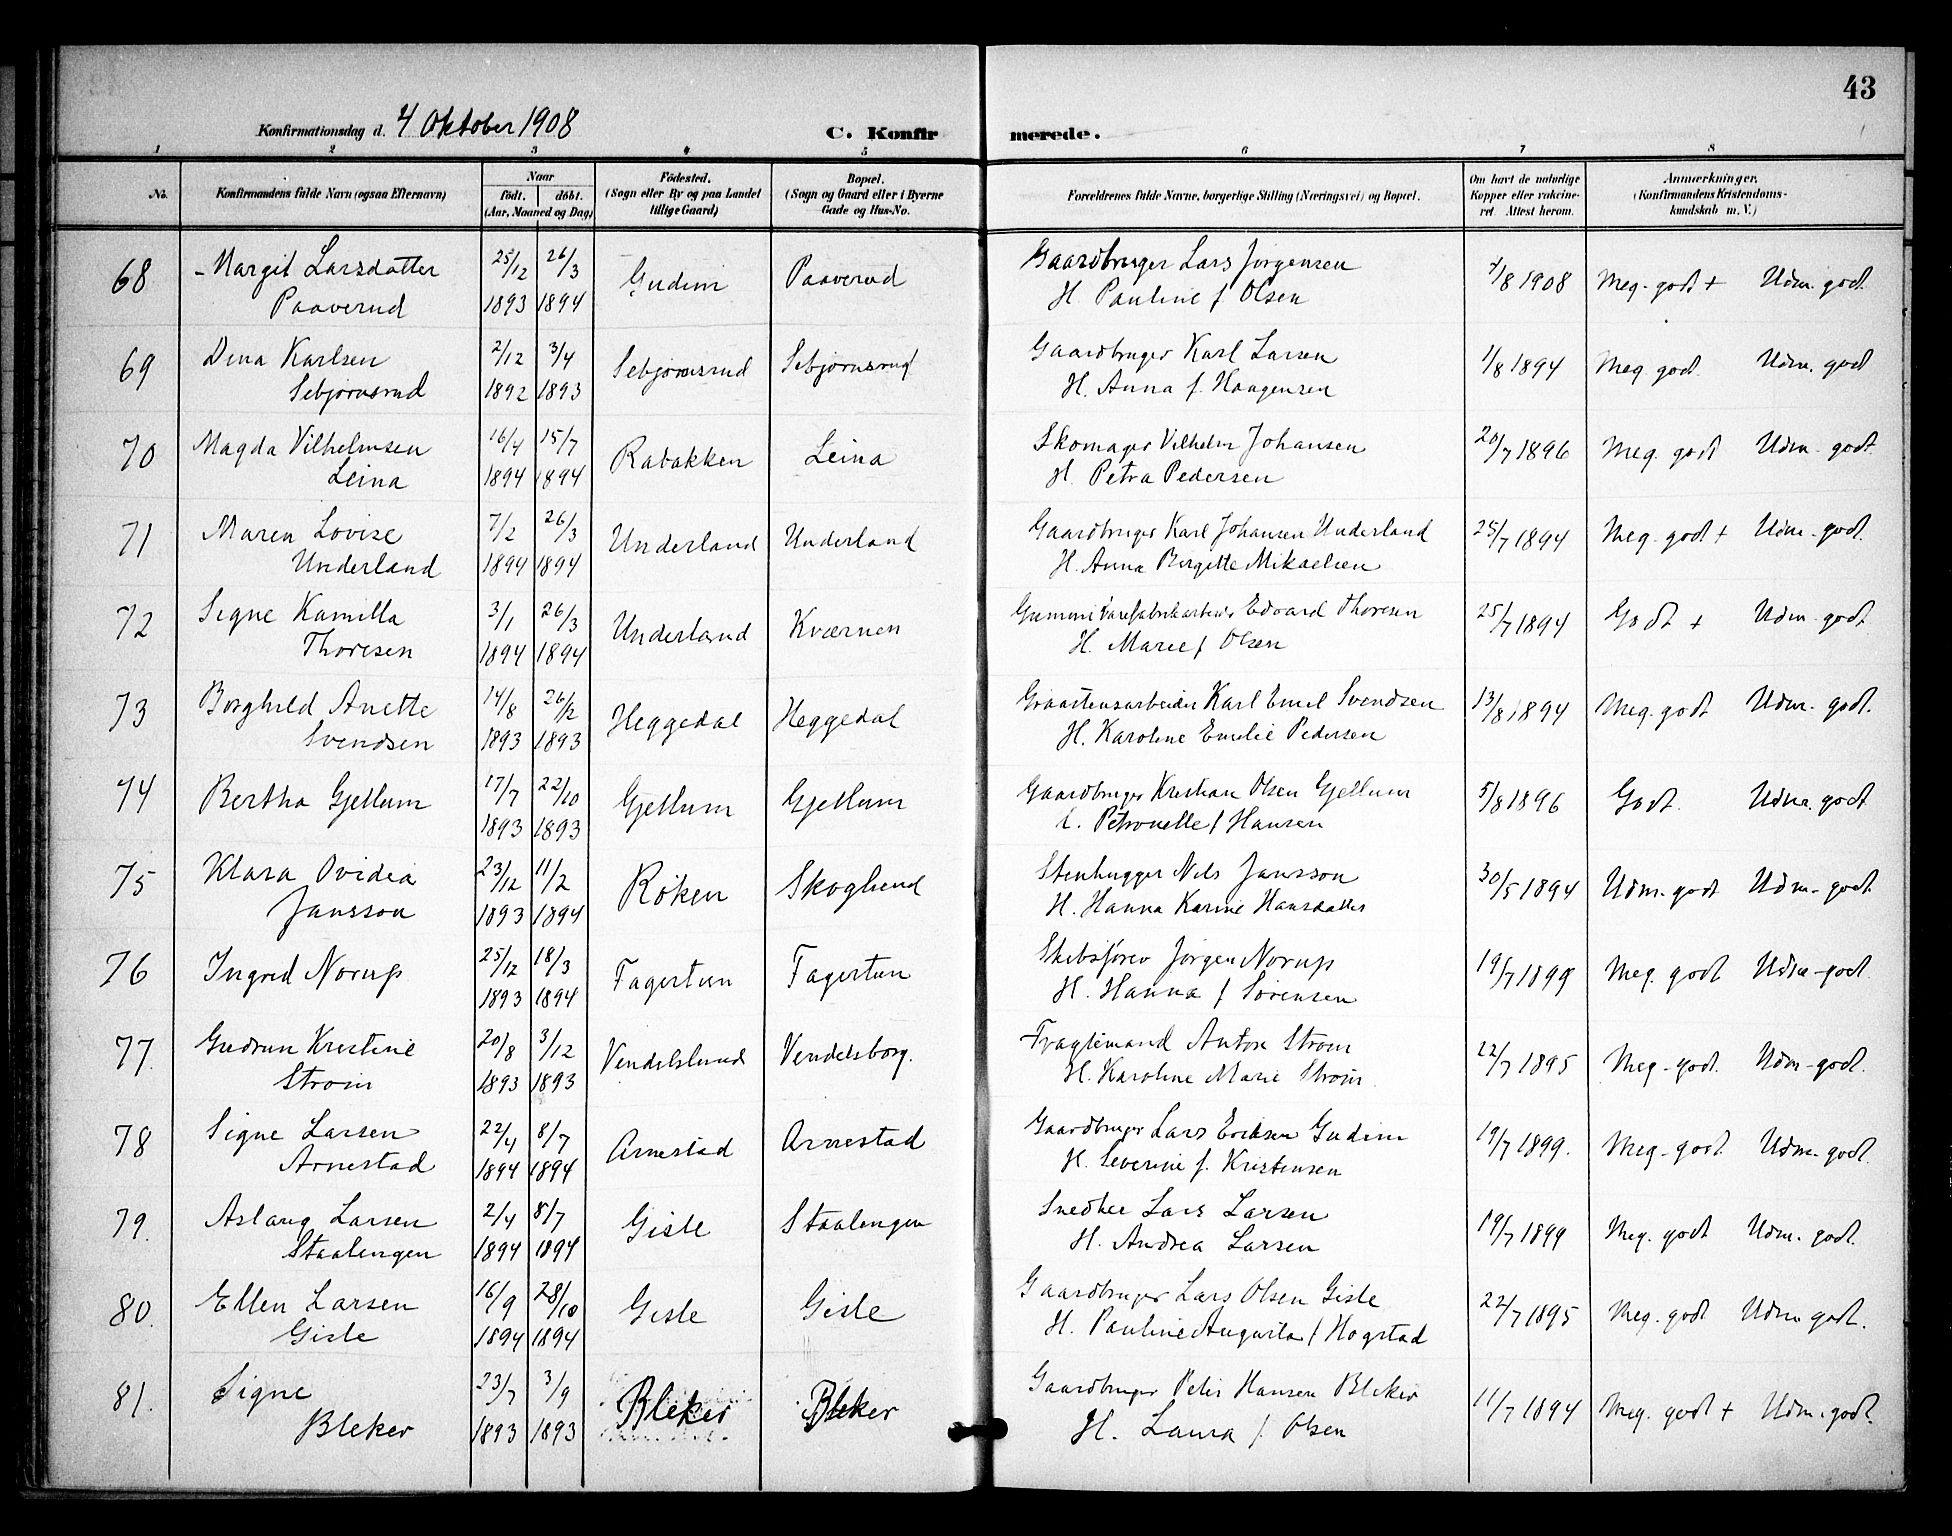 43
Konfirmationsdag d. 4 Oktober 1908
C. Konfirmerede.
1 2 3 4 5 6 7 8
No.
Konfirmandens fulde Navn (ogsaa Efternavn)
Naar
født. døbt.
(Aar, Maaned og Dag)
Fødested.
(Sogn eller By og paa Landet
tillige Gaard)
Bopæl.
(Sogn og Gaard eller i Byerne
Gade og Hus-No.
Forældrenes fulde Navne, borgerlige Stilling (Næringsvei) og Bopæl.
Om havt de naturlige
Kopper eller vakcine-
ret. Attest herom.
Anmerkninger.
(Konfirmandens Kristendoms-
kundskab m. V.)
68 Margit Larsdatter 25/12 26/3 Gudim Paaverud Gaardbruger Lars Jørgensen 7/8 1908 Meg. godt + Udm. godt.
Paaverud 1893 1894 H. Pauline f Olsen
69 Dina Karlsen 2/12 3/4 Sebjørnsrud Sebjørnsrud Gaardbruger Karl Larsen 1/8 1894 Meg godt. Udm. godt
Sebjørnsrud 1892 1893 H. Anna f. Haagensen
70 Magda Vilhelmsen 16/4 15/7 Rabakken Leina Skomager Vilhelm Johansen 20/7 1896 Meg. godt Udm. godt.
Leina 1894 1894 H. Petra Pedersen
71 Maren Lovise 7/2 26/3 Underland Underland Gaardbruger Karl Johansen Underland 25/7 1894 Meg. godt + Udm. godt.
Underland 1894 1894 H. Anna Birgitte Mikaelsen
72 Signe Kamilla 3/1 26/3 Underland Kværnen Gummivarefabrikarbeider Edvard Thoresen 25/7 1894 Godt + Udm. godt
Thoresen 1894 1894 H. Marie f Olsen
73 Borghild Anette 14/8 26/2 Heggedal Heggedal Graastensarbeider Karl Emil Svendsen 13/8 1894 Meg. godt Udm. godt.
Svendsen 1893 1893 H. Karoline Emilie Pedersen
74 Bertha Gjellum 17/7 22/10 Gjellum Gjellum Gaardbruger Kristian Olsen Gjellum 5/8 1896 Godt. Udm. godt
1893 1893 Petronelle f Hansen
75 Klara Ovidia 23/12 11/2 Røken Skoglund Stenhugger Nils Jansson 30/5 1894 Udm. godt Udm. godt.
Jansson 1893 1894 H. Hanna Karine Hansdatter
76 Ingrid Norup 25/12 18/3 Fagertun Fagertun Skibsfører Jørgen Norup 19/7 1899 Meg. godt Udm. godt.
1893 1894 H. Hanna f Sørensen
77. Gudrun Kristine 20/8 3/12 Vendelslund Vendelsborg. Fragtemand Anton Strøm 22/7 1895 Meg. godt. Udm. godt.
Strøm 1893 1893 H. Karoline Marie Strøm
78 Signe Larsen 22/4 8/7 Arnestad Arnestad Gaardbruger Lars Eriksen Gudim 19/7 1899. Meg. godt Udm. godt.
Arnestad 1894 1894 H. Severine f. Kristensen
79. Aslaug Larsen 2/4 8/7 Gisle Staalengen Snedker Lars Larsen 19/7 1899 Meg. godt Udm. godt.
Staalengen 1894 1894 H. Andrea Larsen
80. Ellen Larsen 16/9 28/10 Gisle Gisle Gaardbruger Lars Olsen Gisle 22/7 1895 Meg. godt Udm godt.
Gisle 1894 1894 H. Pauline Augusta f Hogstad
81. Signe 23/7 3/9 Bleker Bleker Gaardbruger Peter Hansen Bleker 11/7 1894 Meg. godt + Udm. godt.
Bleker 1893 1893 H. Laura f. Olsen